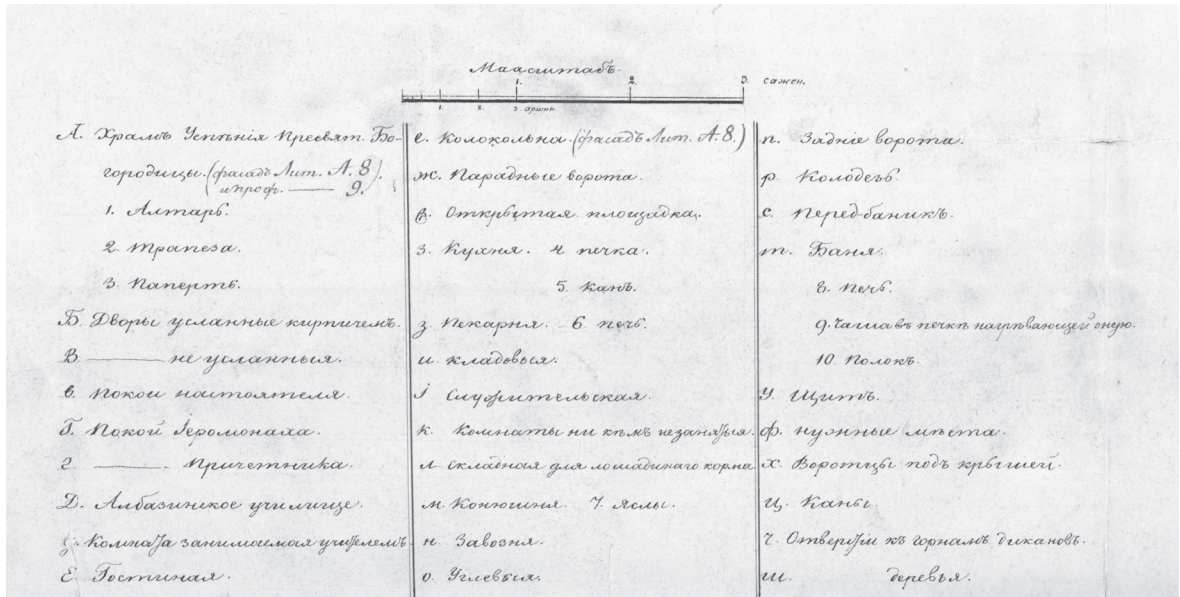 Маасштабъ.
1. 2. 3. сажен.
1. 2. 3 аршнъ
А. Храмъ Успѣнія Пресвят. Бо-
городицы. (фасадъ Лит. А. 8).
ипроф. —— 9.
1. Алтарь.
2. Трапеза.
3. Паперть.
Б. Дворы усланные кирпичемъ.
В. ——— не усланныя.
в. Покои настоятеля.
Г. Покой Іеромонаха.
г. ———. Причетника.
Д. Албазинское училище.
д. Комната занимаемая учителемъ.
Е Гостиная.
е. Колокольна. (фасадъ Лит. А. 8.)
ж. Парадные ворота.
Открытая площадка.
З. Кухня. 4 печка.
5. Канъ.
з. Пекарня. – 6. печь.
и кладовыя.
і Служительская.
к. Комнаты ни кѣмъ незанятыя.
л складная для лошадинаго корма
м. Конюшня. 7. Яслы.
н. Завозня.
о. Углевыя.
п. Задніе ворота.
р. Колодезь.
с. Перед-баникъ.
т. Баня.
8. Печь.
9. Чаша въ печкѣ нагрѣвающей оную.
10. Полокъ.
У. Щитъ.
ф. нужные мѣста.
х. Воротцы подъ крышей.
Ц. Каны.
Ч. Отверзтіи къ горнамъ дикановъ.
ш. деревья.